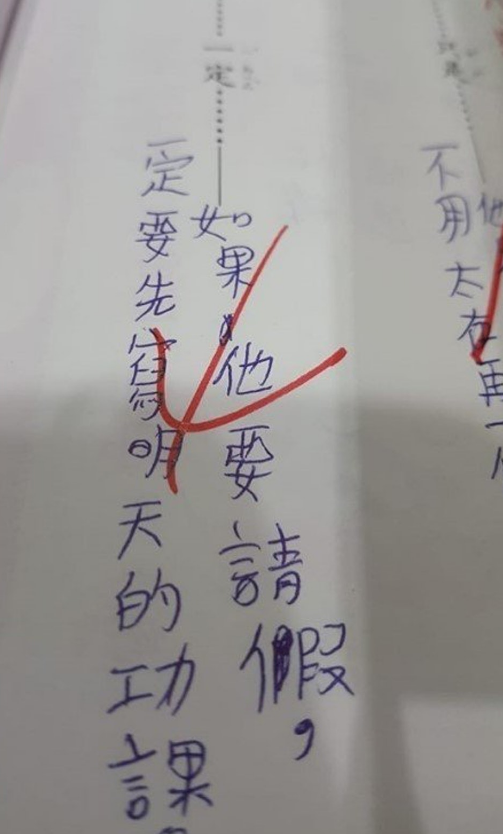 只是
他
不用太在再一
……一定……
如果,他要請假,
一定要先寫明天的功課。